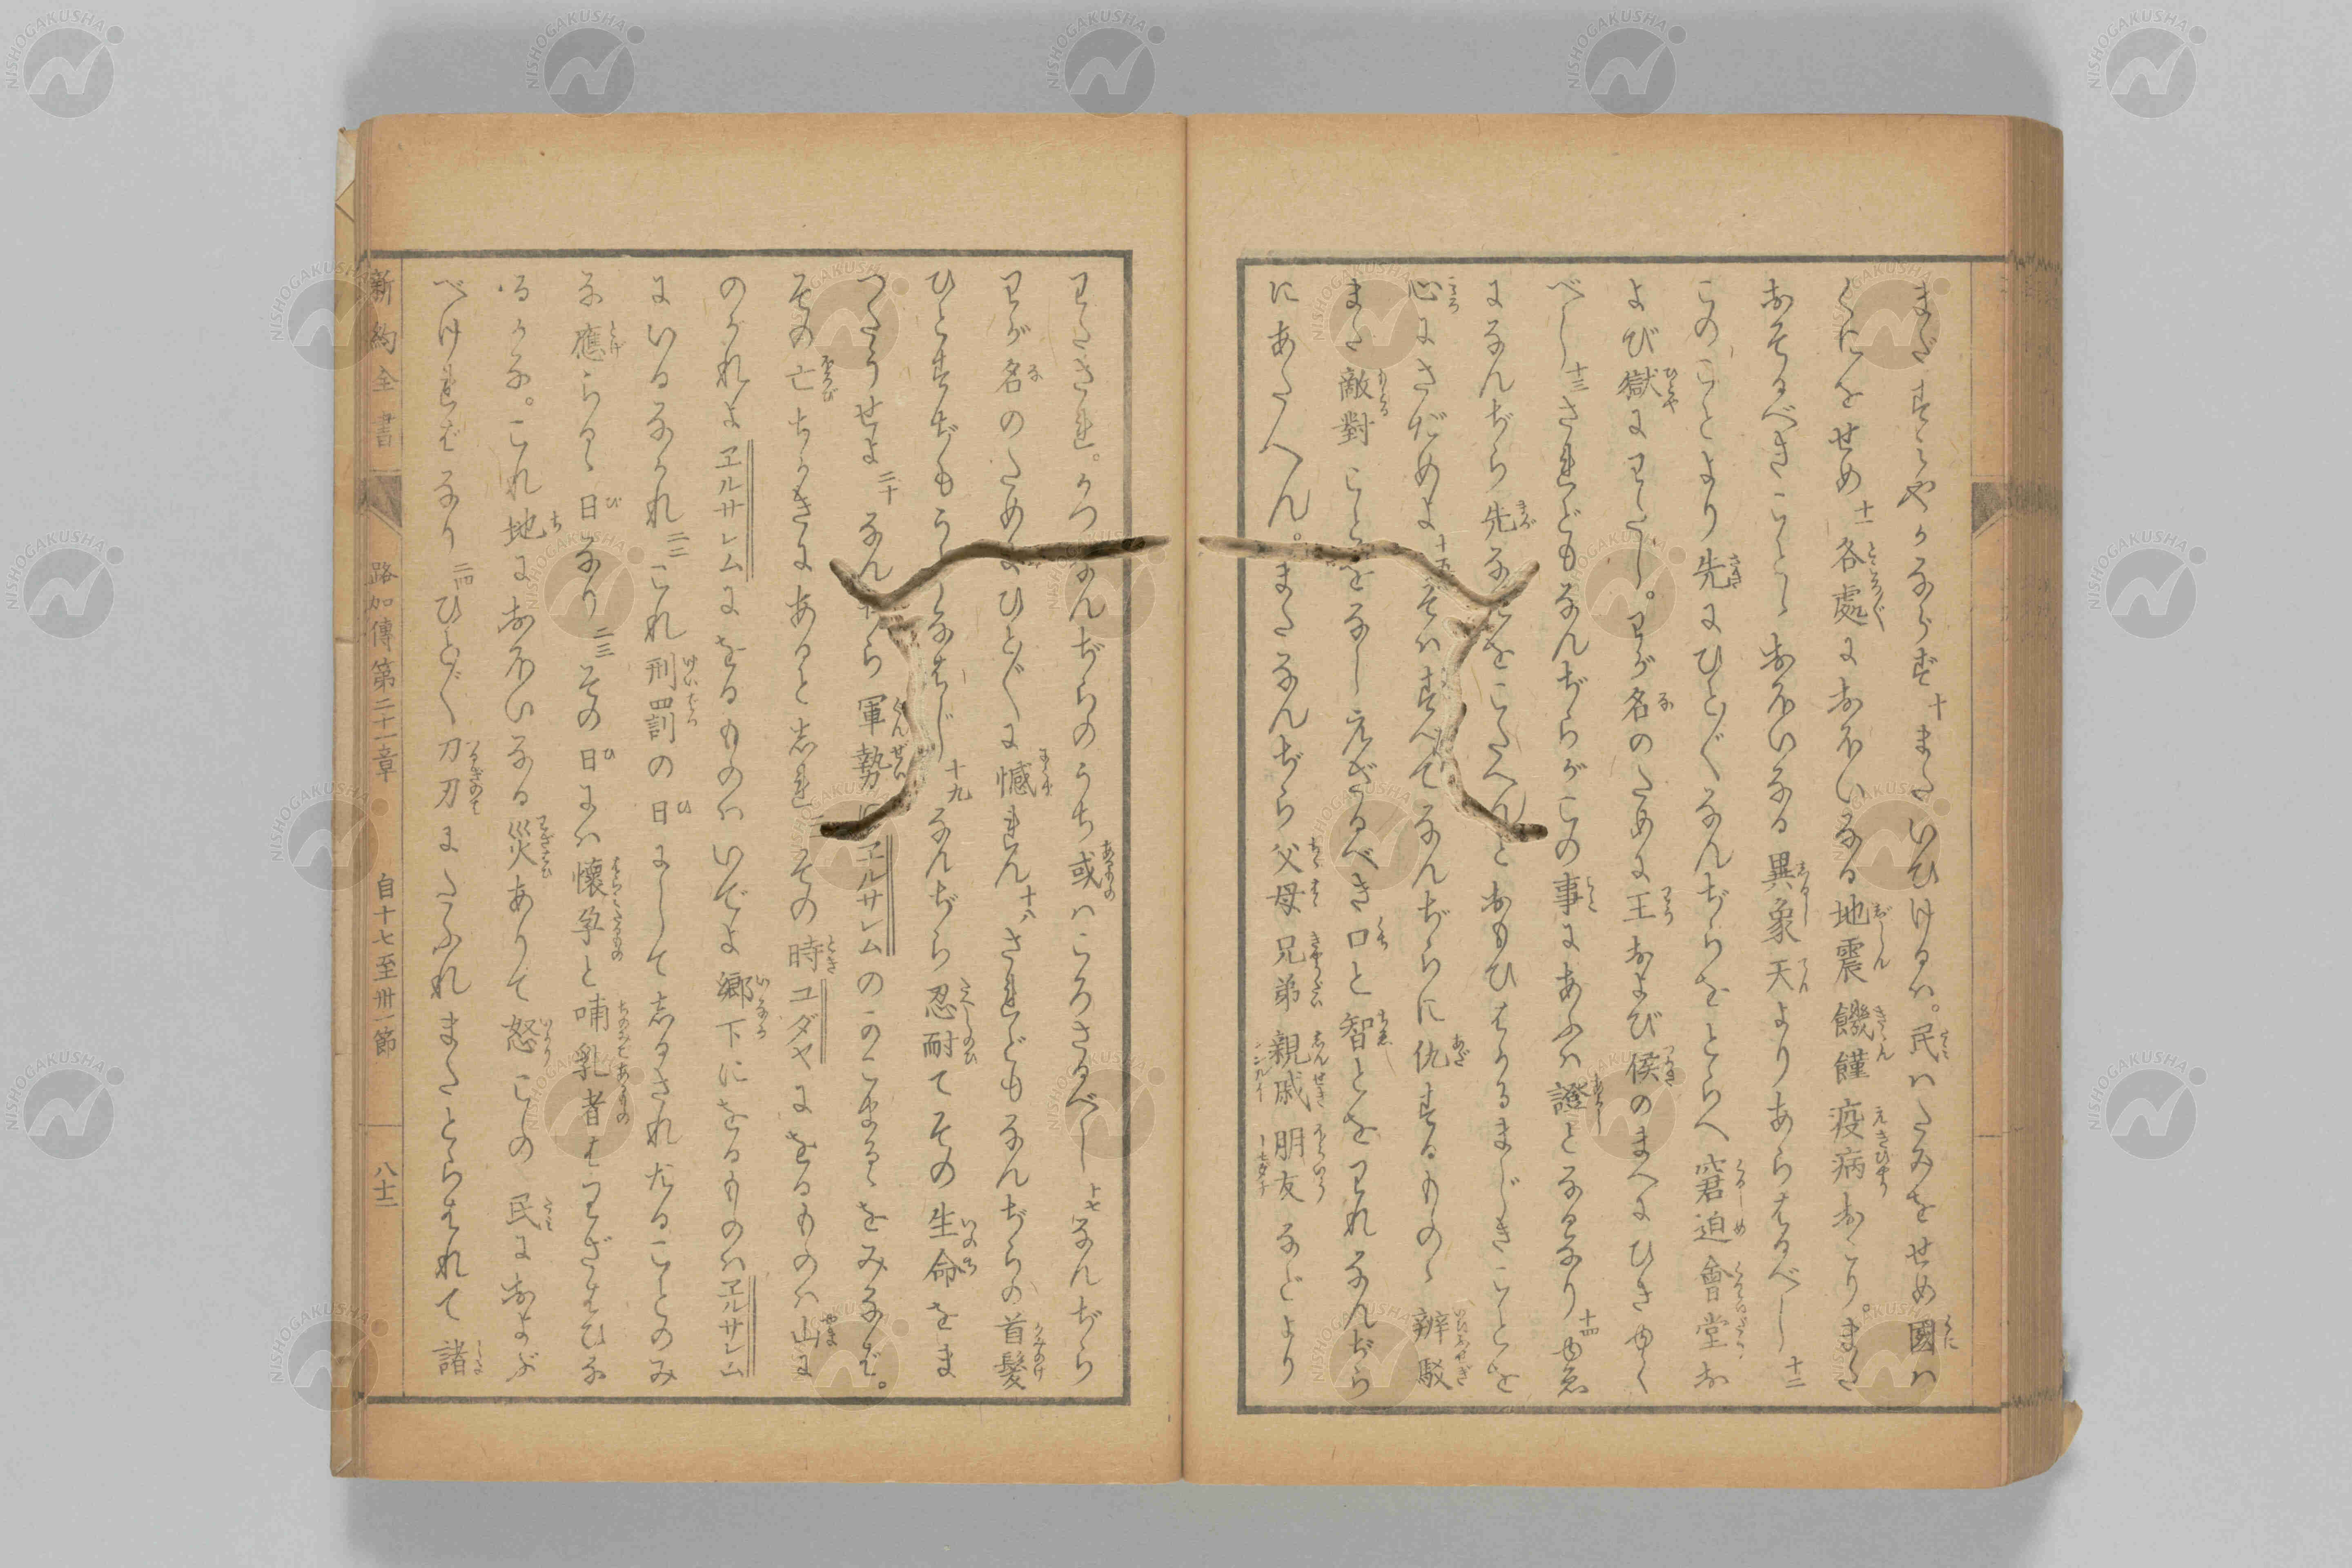 まだすみやかならず十またいひけるハ。民ハたみをせめ國ハ
くにをせめ十一各處におほいなる地震饑饉疫病おこり。また
おそるべきことゝおほいなる異象天よりあらはるべし十二
このことより先にひと〴〵なんぢらをとらへ窘迫會堂お
よび獄にわたし。わが名のために王および侯のまへにひきゆく
べし十三されどもなんぢらがこの事にあふハ證となるなり十四ゆゑ
になんぢら先なにをこたへんとおもひはかるまじきことを
心にさだめよ十五そハすべてなんぢらに仇するものゝ辨駁
また敵對ことをなしえざるべき口と智とをわれなんぢら
にあたへん。またなんぢら父母兄弟親戚朋友などより
わたされ。かつなんぢらのうち或ハころさるべし十七なんぢら
わが名のためにひと〴〵に憾れん十八されどもなんぢらの首髮
ひとすぢもうしなはじ十九なんぢら忍耐てその生命をま
つたうせよ二十なんぢら軍勢にヱルサレムのかこまるゝをみなバ。
その亡ちかきにあると志れその時ユダヤにをるものハ山に
のがれよヱルサレムにをるものハいでよ郷下にをるものハヱルサレム
にいるなかれ二二これ刑罰の日にして志るされたることのみ
な應らるゝ日なり二三その日にハ懷孕と哺乳者はわざはひな
るかな。これ地におほいなる災ありて怒この民におよぶ
べければなり二四ひと〴〵刀刃にたふれまたとらはれて諸
新約全書 路加傳第二十一章 自十七至卅一節 八十二